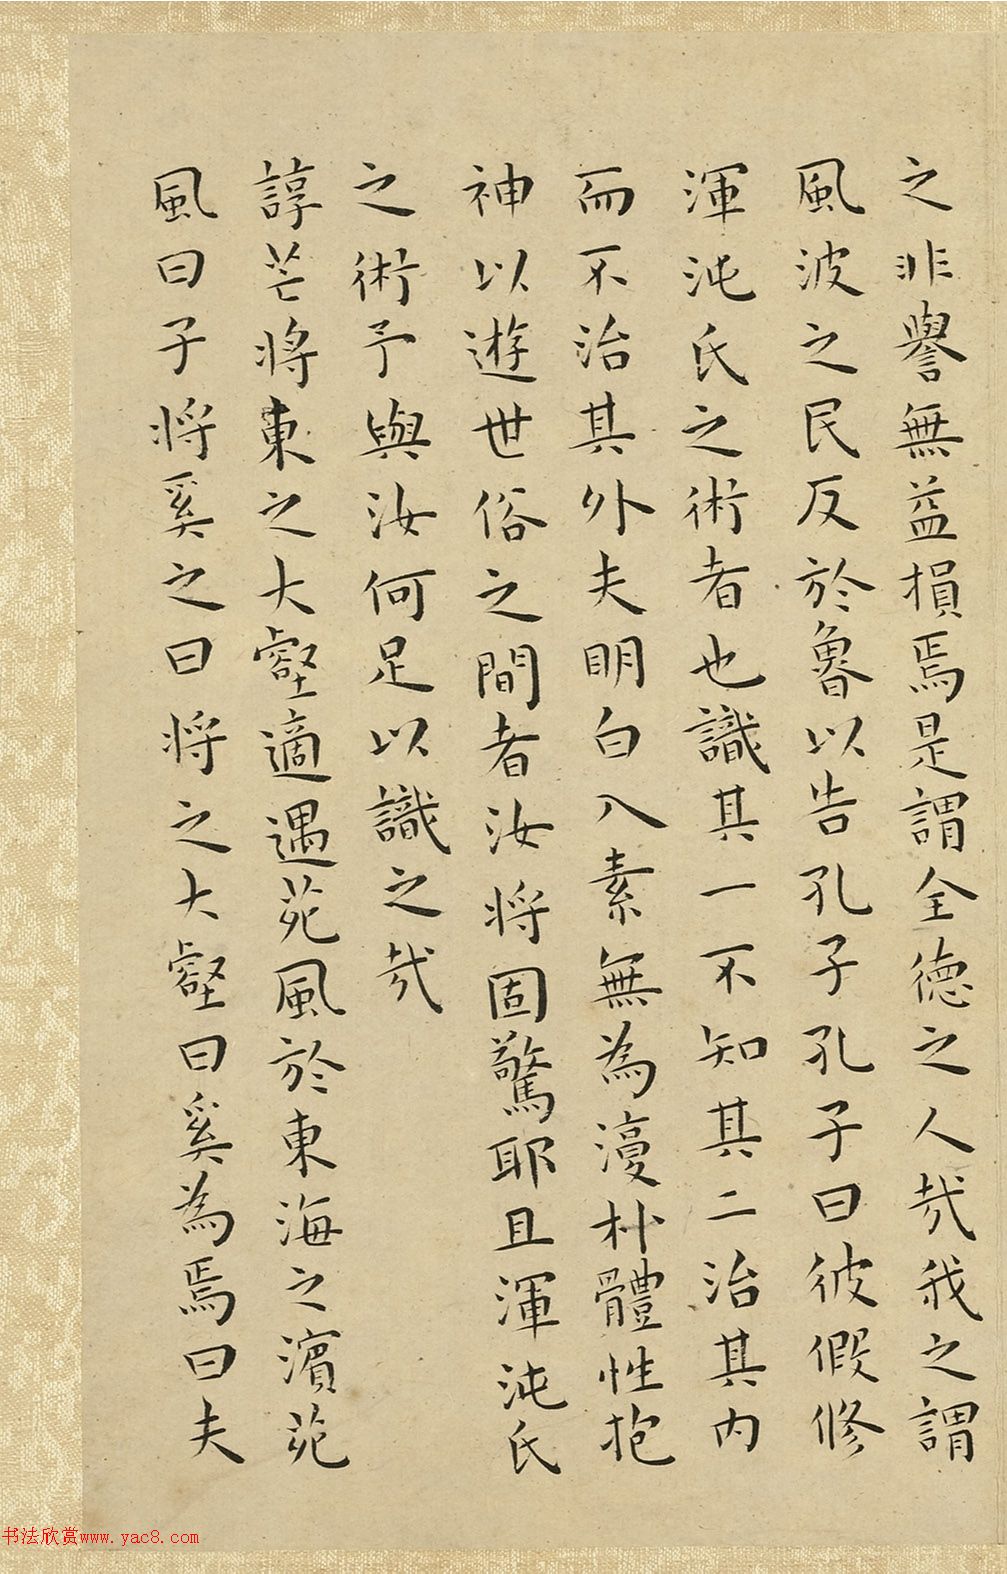 之非譽無益損焉是謂全德之人哉我之謂
風波之民反於魯以告孔子孔子曰彼假修
渾沌氏之術者也識其一不知其二治其內
而不治其外夫明白入素無為復朴體性抱
神以遊世俗之間者汝將固驚耶且渾沌氏
之術予與汝何足以識之哉
諄芒將東之大壑適遇苑風於東海之濱苑
風曰子將奚之曰將之大壑曰奚為焉曰夫
书法欣赏www.yac8.com